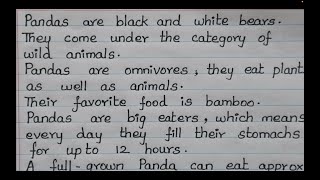 Pandas are black and white bears.
They come under the category of
wild animals.
Pandas are omnivores, they eat plant
as well as animals.
Their favorite food is bamboo.
Pandas are big eaters, which means
every day they fill their stomachs
for upto 12 hours.
A full-grown Panda can eat approx